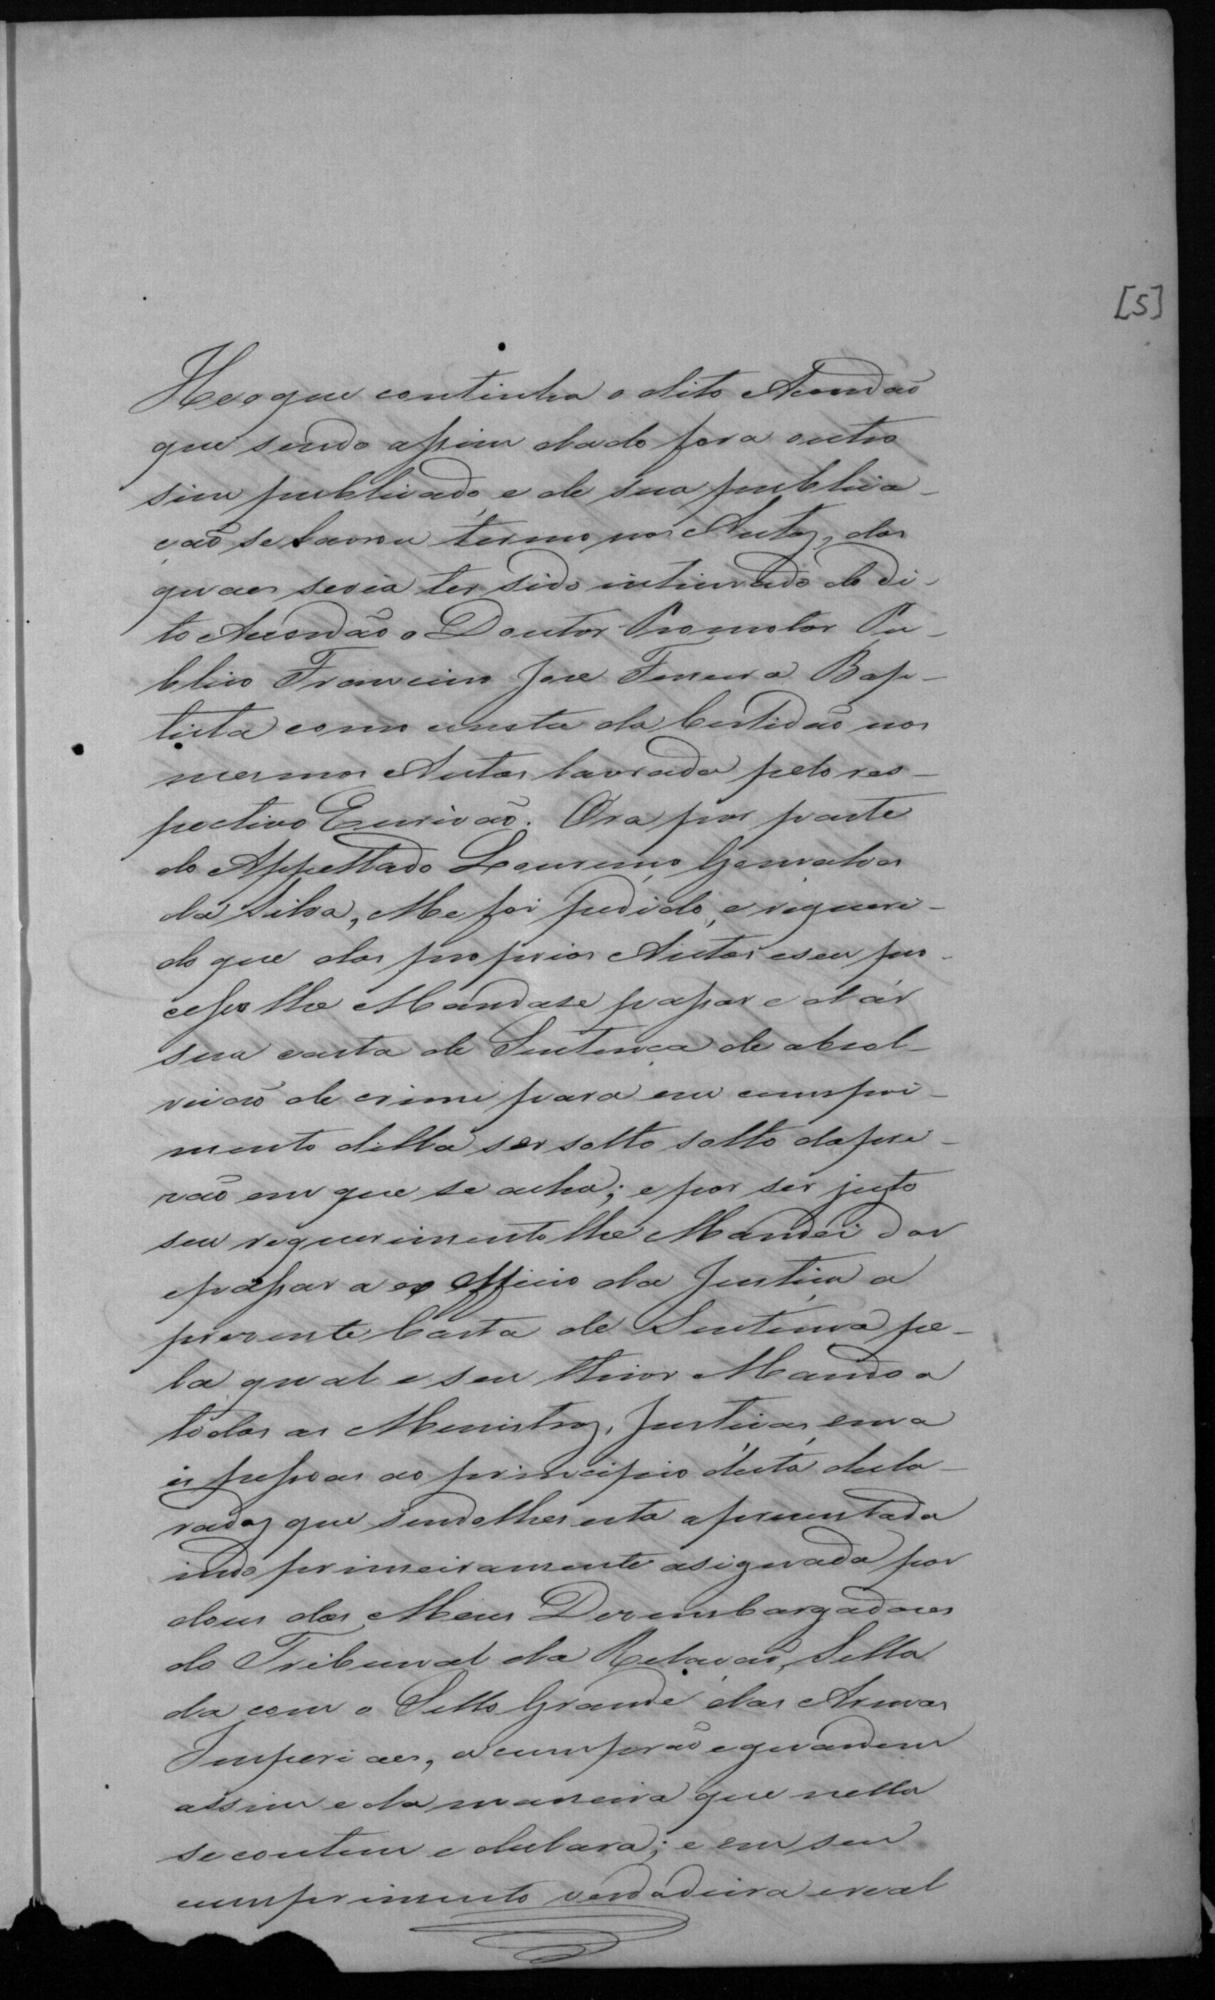 [5]
He o que continha o dito Acordão
que sendo assim dado fora outro
sim publicado, e de sua publica-
ção se lavrou termo nos Autos, dos
quaes seria ter sido intimado do di-
to Acordão o Doutor Promotor Pu-
blico Francisco Jose Ferreira Bap-
tista como consta da Certidão nos
mesmos Autos lavrada pelo res-
pectivo Escrivão. Ora por parte
do Appellado Lourenço Gonçalves
da Silva, Me foi pedido, e requeri-
do que dos proprios Autos e seu pro-
cesso lhe Mandase passar e dár
sua carta de Sentença de absol-
vição de crime para em cumpri-
mento della ser solto solto da pri-
zão em que se acha; e por ser justo
seu requerimento lhe Mandei dar
e passar a ex Officio da Justiça a
prezente Carta de Sentença pe-
la qual e seu theor Mando a
todos as Menistros, Justiças, e ma
is pessoas ao principio desta decla-
radas que sendolhes esta aprezentada
indo primeiramente asignada por
dous dos Meus Dezembargadores
do Tribunal da Relação, Sella
da com o Sello Grande das Armas
Imperiaes, a cumprão e guardem
assim e da maneira que nella
se contem e declara; e em seu
cumprimento verdadeira e real